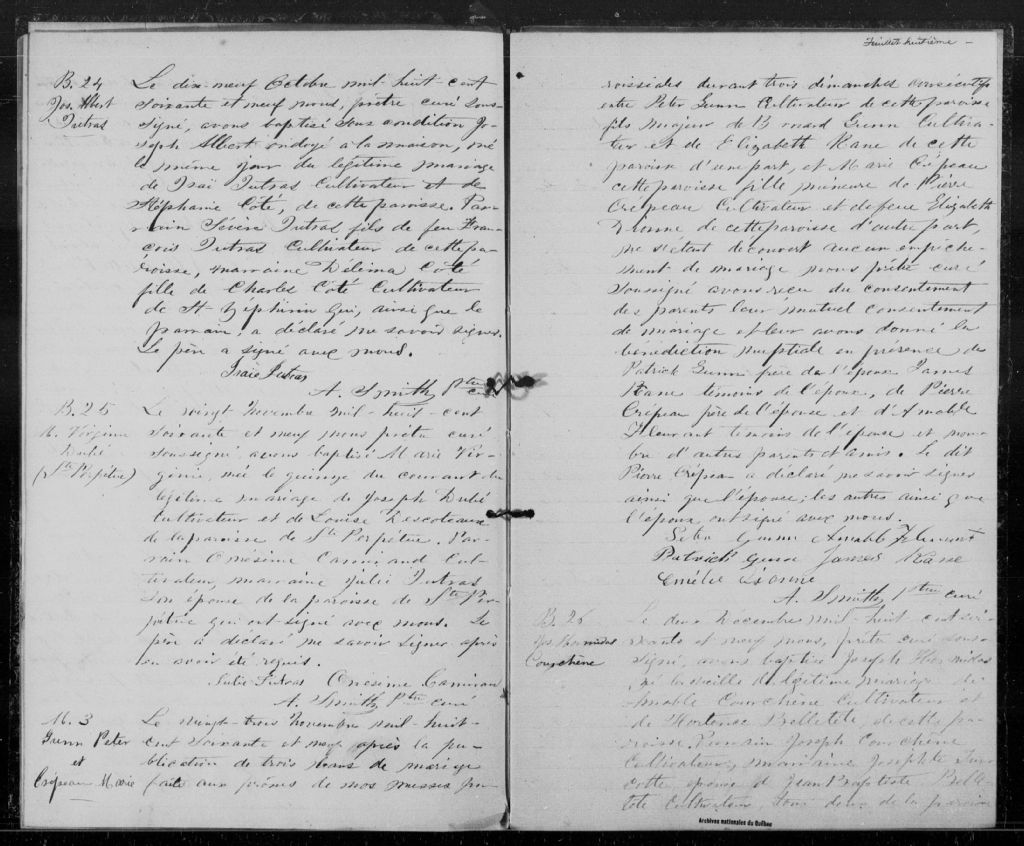 B. 24
Jos. Albert
Jutras
Le dix-neuf Octobre mil-huit-cent
soixante et neuf nous, prêtre curé sous-
signé, avons baptisé sous condition Jo-
seph Albert ondoyé à la maison, né
le même jour du légitime mariage
de Isaï Jutras Cultivateur et de
Stéphanie Côté, de cette paroisse. Par-
rain Sévère Jutras fils de feu Fran-
çois Jutras Cultivateur de cette pa-
roisse, marraine Délima Côté
fille de Charles Côté Cultivateur
de St Zéphirin qui, ainsi que le
parrain, a déclaré ne savoir signer.
Le père a signé avec nous.
Isaïe Jutras
A. Smith, Ptre curé
B. 25
M. Virginie
Dubé
(Ste Perpétue)
Le vingt Novembre mil-huit-cent
soixante et neuf nous prêtre curé
soussigné, avons baptisé Marie Vir-
ginie, née le quinze du courant du
légitime mariage de Joseph Dubé
Cultivateur et de Louise Descoteaux
de la paroisse de Ste Perpétue. Par-
rain Onésime Camirand Cul-
tivateur, marraine Julie Jutras
son épouse de la paroisse de Ste Per-
pétue qui ont signé avec nous. Le
père a déclaré ne savoir signer après
en avoir été requis.
Julie Jutras Onesime Camiran
A. Smith, Ptre curé
M. 3
Grenn Peter
et
Crépeau Marie
Le vingt-trois Novembre mil huit-
cent soixante et neuf après la pu-
blication de trois bans de mariage
faite aux prônes de nos messes pa-
Feuillet huitième
roissiales durant trois dimanches consécutifs
entre Peter Gunn Cultivateur de cette paroisse
fils majeur de Grenn Cultiva-
teur et de Elizabeth Kane de cette
paroisse d'une part, et Marie Crépeau
cette paroisse fille mineure de Pierre
Crépeau Cultivateur et de feue Elizabeth
de cette paroisse d'autre part,
ne s'étant découvert aucun empêche-
ment de mariage nous prêtre curé
soussigné avons reçu du consentement
des parents leur mutuel consentement
de mariage et leur avons donné la
bénédiction nuptiale en présence de
Patrick Gunn père de l'époux James
Kane témoins de l'époux, de Pierre
Crépeau père de l'épouse et d'Amable
témoins de l'épouse et nom-
bre d'autres parents et amis. Le dit
Pierre Crépeau a déclaré ne savoir signer
ainsi que l'épouse; les autres ainsi que
l'époux ont signé avec nous.
Peter Gunn Amable
Patrick Gunn James Kane
Emélie
A. Smith, Ptre curé
B. 26
Jos. Hormidas
Courchène
Le deux Décembre mil-huit-cent soi-
xante et neuf nous, prêtre curé sous-
signé, avons baptisé Joseph Hormidas
né la veille du légitime mariage de
Amable Courchène Cultivateur et
de Hortense Belletête, de cette pa-
roisse. Parrain Joseph Courchène
Cultivateur, marraine Josephte Tur-
cotte épouse de Jean Baptiste Belle-
tête Cultivateur, tous deux de la paroisse
Archives nationales du Québec